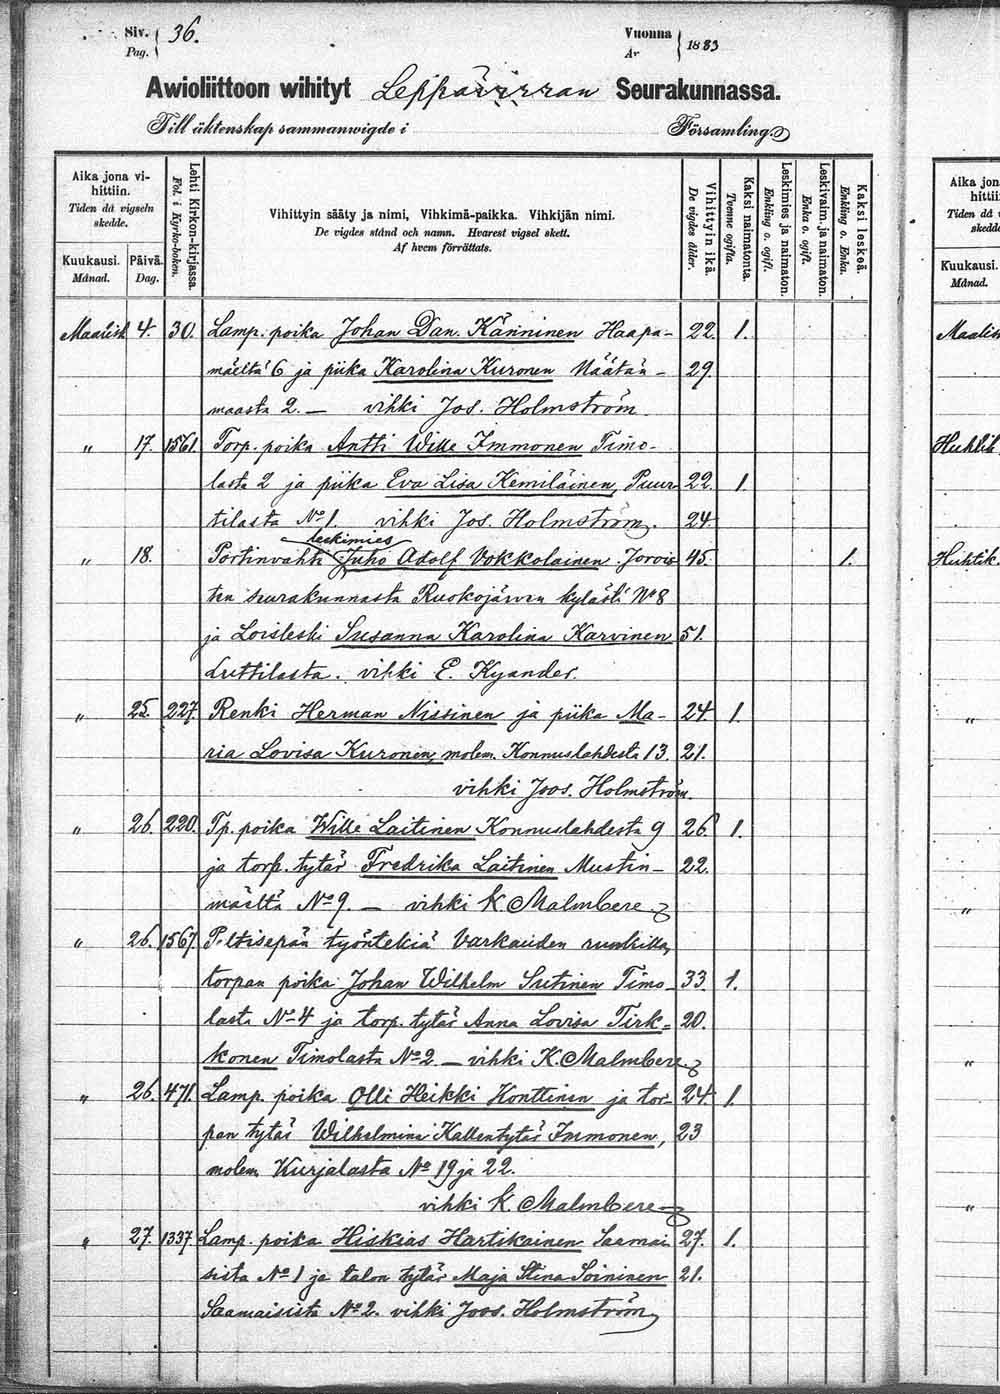 Siv. 36. Vuonna 1883
Pag. År
Awioliittoon wihityt Leppävirran Seurakunnassa.
Till äktenskap sammanwigde i Församling.
Aika jona vihittiin.
Tiden då vigseln skedde.
Kuukausi. Månad.
Päivä. Dag.
Lehti Kirkon-kirjassa.
Fol. i Kyrko-boken.
Vihittyin sääty ja nimi, Vihkimä-paikka. Vihkijän nimi.
De vigdes stånd och namn. Hvarest vigsel skett.
Af hvem förrättats.
Vihittyin ikä.
De vigdes ålder.
Kaksi naimatonta.
Tvenne ogifta.
Leskimies ja naimaton.
Enkling o. ogift.
Leskivaim. ja naimaton.
Enka o. ogift.
Kaksi leskeä.
Enkling o. Enka.
Maalisk 4. 30. Lamp. poika Johan Dan. Känninen Haapa- 22. 1.
mäeltä 6 ja piika Karolina Kuronen Näätän- 29.
maasta 2. — vihki Jos. Holmström.
" 17. 1561. Torp. poika Antti Wille Immonen Timo-
lasta 2 ja piika Eva Lisa Kemiläinen, Puur- 22. 1.
tilasta No 1. vihki Jos. Holmström. 24.
leskimies
" 18. Portinvahti Juho Adolf Vokkolainen Jorois- 45. 1.
ten seurakunnasta Ruokojärven kylästä No 8
ja Loisleski Susanna Karolina Karvinen 51.
Luttilasta. vihki E. Kyander.
" 25. 227. Renki Herman Nissinen ja piika Ma- 24. 1.
ria Lovisa Kuronen, molem. Konnuslahdesta 13. 21.
vihki Joos. Holmström.
" 26. 220. Tp. poika Wille Laitinen Konnuslahdesta 9 26. 1.
ja torp. tytär Fredrika Laitinen Mustin- 22.
mäeltä No 9. — vihki K. Malmberg
" 26. 1567. työntekiä Varkauden
torpan poika Johan Wilhelm Sutinen Timo- 33. 1.
lasta No 4 ja torp. tytär Anna Lovisa Tirk- 20.
konen Timolasta No 2. — vihki K. Malmberg
" 26. 471. Lamp. poika Olli Heikki Konttinen ja tor- 24. 1.
pan tytär Wilhelmina Kallentytär Immonen, 23
molem. Kurjalasta No 19 ja 22.
vihki K. Malmberg
" 27. 1337. Lamp. poika Hiskias Hartikainen Saamai- 27. 1.
sista No 1 ja talon tytär Maja Stina Soininen 21.
Saamaisista No 2. vihki Joos. Holmström
Aika jon
hittii
Tiden då
skedde
Kuukausi.
Månad.
Maalisk
Huhtik
Huhtik.
"
"
"
"